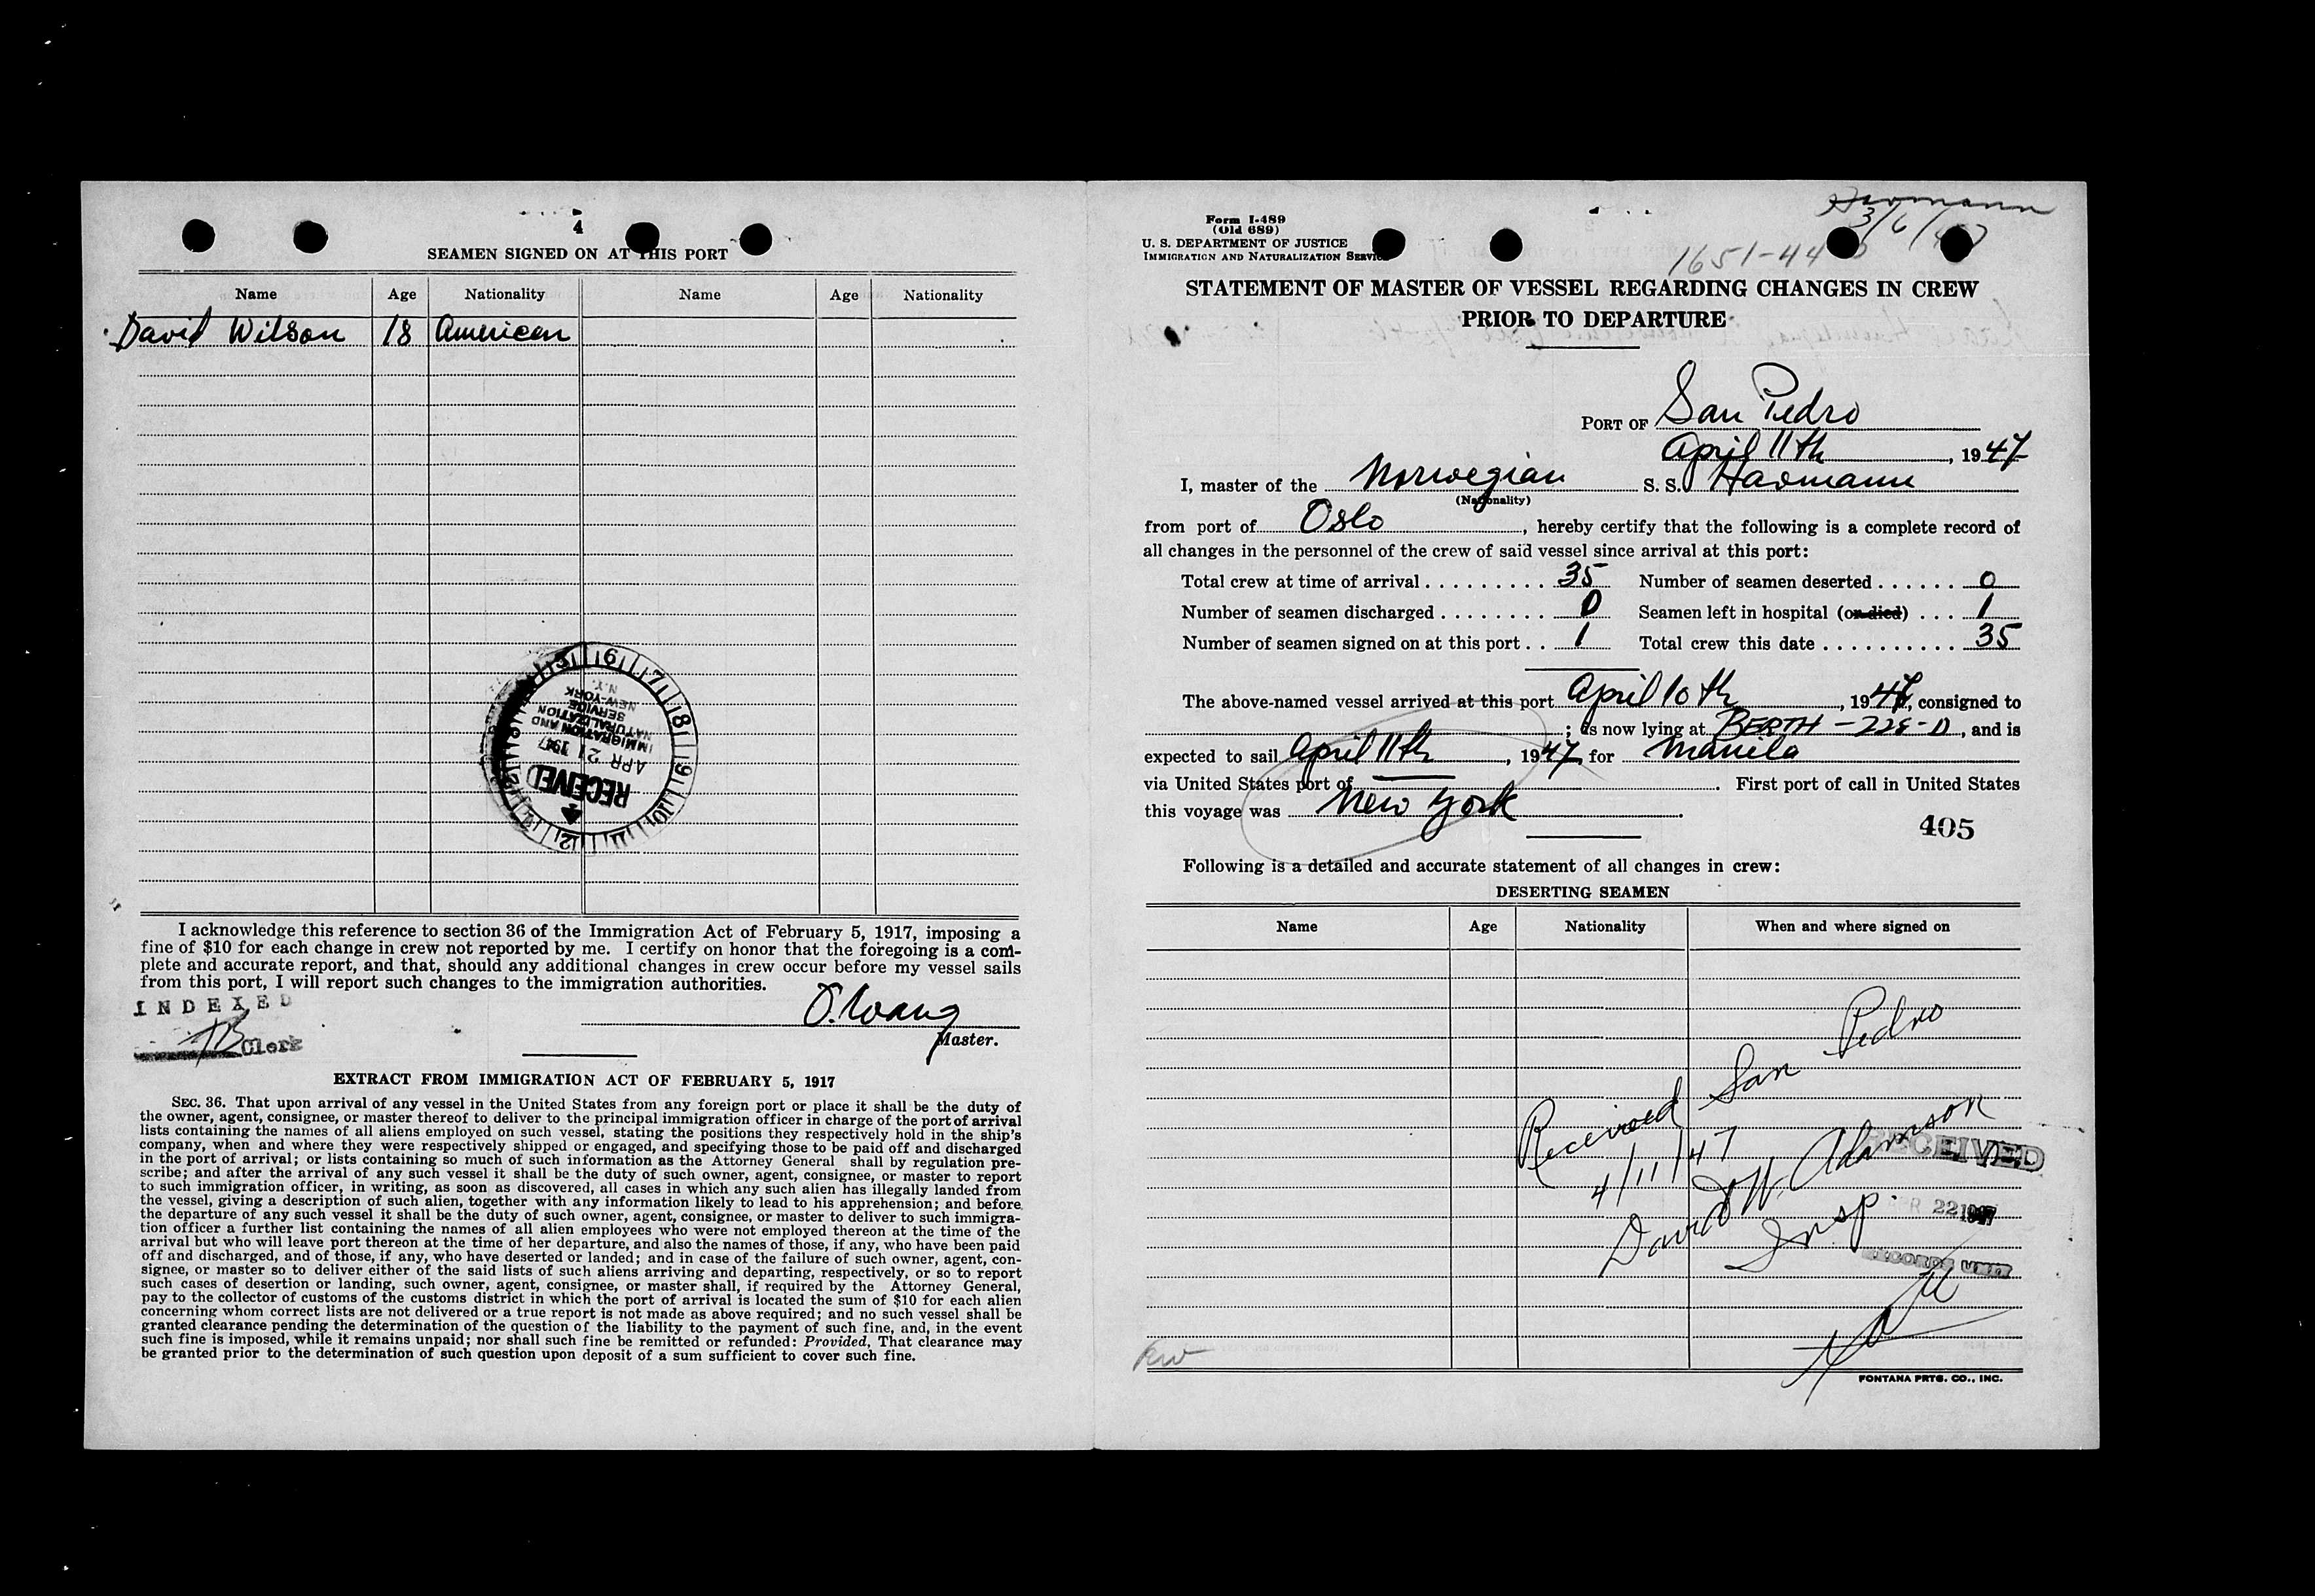 4
SEAMEN SIGNED ON AT THIS PORT
Name Age Nationality Name Age Nationality
David Wilson 18 American
RECEIVED
APR 21 1947
IMMIGRATION AND
NATURALIZATION
SERVICE
NEW-YORK
N.Y.
I acknowledge this reference to section 36 of the Immigration Act of February 5, 1917, imposing a
fine of $10 for each change in crew not reported by me. I certify on honor that the foregoing is a com-
plete and accurate report, and that, should any additional changes in crew occur before my vessel sails
from this port, I will report such changes to the immigration authorities.
INDEXED
Clerk
Master.
EXTRACT FROM IMMIGRATION ACT OF FEBRUARY 5, 1917
SEC. 36. That upon arrival of any vessel in the United States from any foreign port or place it shall be the duty of
the owner, agent, consignee, or master thereof to deliver to the principal immigration officer in charge of the port of arrival
lists containing the names of all aliens employed on such vessel, stating the positions they respectively hold in the ship's
company, when and where they were respectively shipped or engaged, and specifying those to be paid off and discharged
in the port of arrival; or lists containing so much of such information as the Attorney General shall by regulation pre-
scribe; and after the arrival of any such vessel it shall be the duty of such owner, agent, consignee, or master to report
to such immigration officer, in writing, as soon as discovered, all cases in which any such alien has illegally landed from
the vessel, giving a description of such alien, together with any information likely to lead to his apprehension; and before
the departure of any such vessel it shall be the duty of such owner, agent, consignee, or master to deliver to such immigra-
tion officer a further list containing the names of all alien employees who were not employed thereon at the time of the
arrival but who will leave port thereon at the time of her departure, and also the names of those, if any, who have been paid
off and discharged, and of those, if any, who have deserted or landed; and in case of the failure of such owner, agent, con-
signee, or master so to deliver either of the said lists of such aliens arriving and departing, respectively, or so to report
such cases of desertion or landing, such owner, agent, consignee, or master shall, if required by the Attorney General,
pay to the collector of customs of the customs district in which the port of arrival is located the sum of $10 for each alien
concerning whom correct lists are not delivered or a true report is not made as above required; and no such vessel shall be
granted clearance pending the determination of the question of the liability to the payment of such fine, and, in the event
such fine is imposed, while it remains unpaid; nor shall such fine be remitted or refunded: Provided, That clearance may
be granted prior to the determination of such question upon deposit of a sum sufficient to cover such fine.
Havmann
3/6/47
Form I-489
(Old 689)
U. S. DEPARTMENT OF JUSTICE
IMMIGRATION AND NATURALIZATION SERVICE
STATEMENT OF MASTER OF VESSEL REGARDING CHANGES IN CREW
PRIOR TO DEPARTURE
PORT OF San Pedro
April 11th, 1947
I, master of the Norwegian S. S. Havmann
(Nationality)
from port of Oslo, hereby certify that the following is a complete record of
all changes in the personnel of the crew of said vessel since arrival at this port:
Total crew at time of arrival . . . . . . . . . . 35 Number of seamen deserted . . . . . . 0
Number of seamen discharged . . . . . . . . 0 Seamen left in hospital (or died) . . . . 1
Number of seamen signed on at this port . . 1 Total crew this date . . . . . . . . . . 35
The above-named vessel arrived at this port April 10th, 1947, consigned to
; is now lying at BERTH - 228-D, and is
expected to sail April 11th, 1947, for Manila
via United States port of —. First port of call in United States
this voyage was New York.
405
Following is a detailed and accurate statement of all changes in crew:
DESERTING SEAMEN
Name Age Nationality When and where signed on
Received San Pedro
4/11/47
David W. Adamson
Insp.
RECEIVED
22 1947
RECORDS UNIT
FONTANA PRTG. CO., INC.